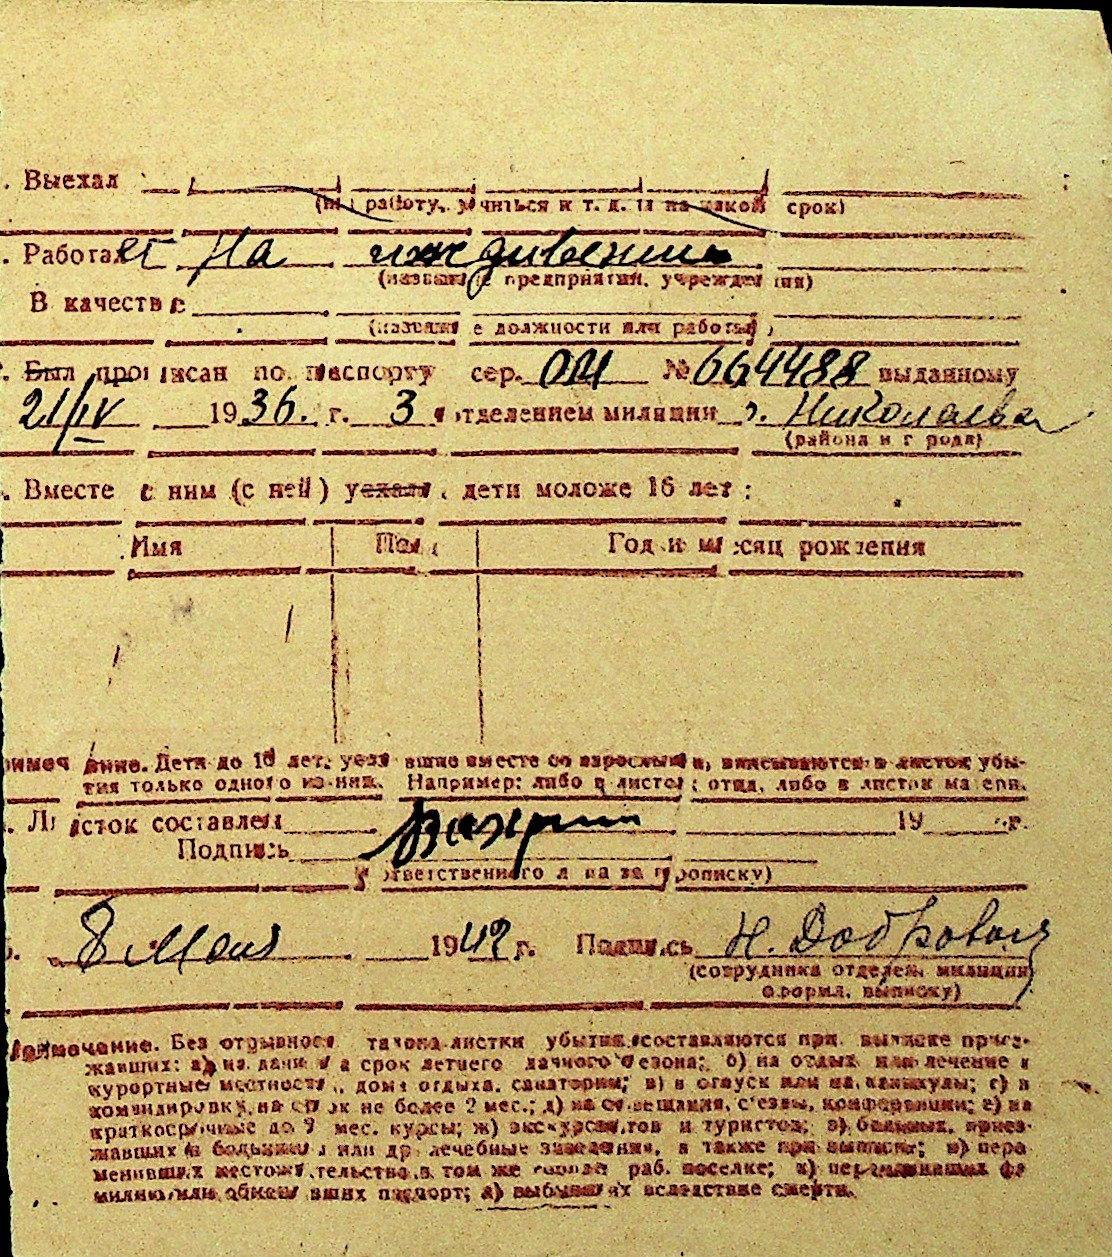 . Выехал
(на работу, учиться и т. д. и на какой срок)
. Работает На иждивении
(название предприятия, учреждения)
В качестве
(название должности или работы)
. Был прописан по паспорту сер. ОМ № 664488 выданному
21/IV 1936. г. 3 отделением милиции г. Николаева
(района и города)
. Вместе с ним (с ней) уехали дети моложе 16 лет:
Имя Пол Год и месяц рождения
имечание. Дети до 16 лет, уехавшие вместе со взрослыми, вписываются в листок убы-
тия только одного из них. Например: либо в листок отца, либо в листок матери.
. Листок составлен 19 г.
Подпись
(ответственного лица за прописку)
. 8 Мая 1942 г. Подпись Н. Доброволь
(сотрудника отделен. милиции
оформ. выписку)
Примечание. Без отрывного талона листки убытия составляются при выписке приез-
жавших: а) на дачи на срок летнего дачного сезона; б) на отдых или лечение в
курортные местности, дома отдыха, санатории; в) в отпуск или на каникулы; г) в
командировку на срок не более 2 мес.; д) на совещания, съезды, конференции; е) на
краткосрочные до мес. курсы; ж) экскурсантов и туристов; з) больных, приез-
жавших в больницы или др. лечебные заведения, а также при выписке; и) пере
менивших местожительство в том же городе раб. поселке; к) переменивших фа
милию или обменявших паспорт; л) выбывших вследствие смерти.